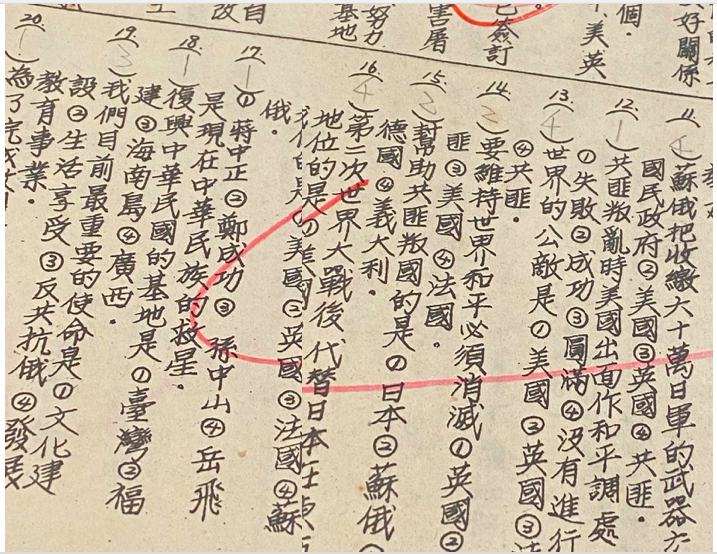 好關係
個。
美英
已簽訂
害屠
努力
基地
自
改
11.(4)蘇俄把收繳六十萬日軍的武器
國民政府②美國③英國④共匪。
12.(1)共匪叛亂時美國出面作和平調處
①失敗②成功③圓滿④沒有進行
13.(4)世界的公敵是①美國②英國③法
④共匪。
14.(3)要維持世界和平必須消滅①英國②
匪③美國④法國。
15.(2)幫助共匪叛國的是①日本②蘇俄
德國④義大利。
16.(4)第二次世界大戰後代替日本在東
地位的是①美國②英國③法國④蘇
俄。
17.(1)①蔣中正②鄭成功③孫中山④岳飛
是現在中華民族的救星。
18.(1)復興中華民國的基地是①臺灣②福
建③海南島④廣西。
19.(3)我們目前最重要的使命是①文化建
設②生活享受③反共抗俄④發展
教育事業。
20.(1)為了完成